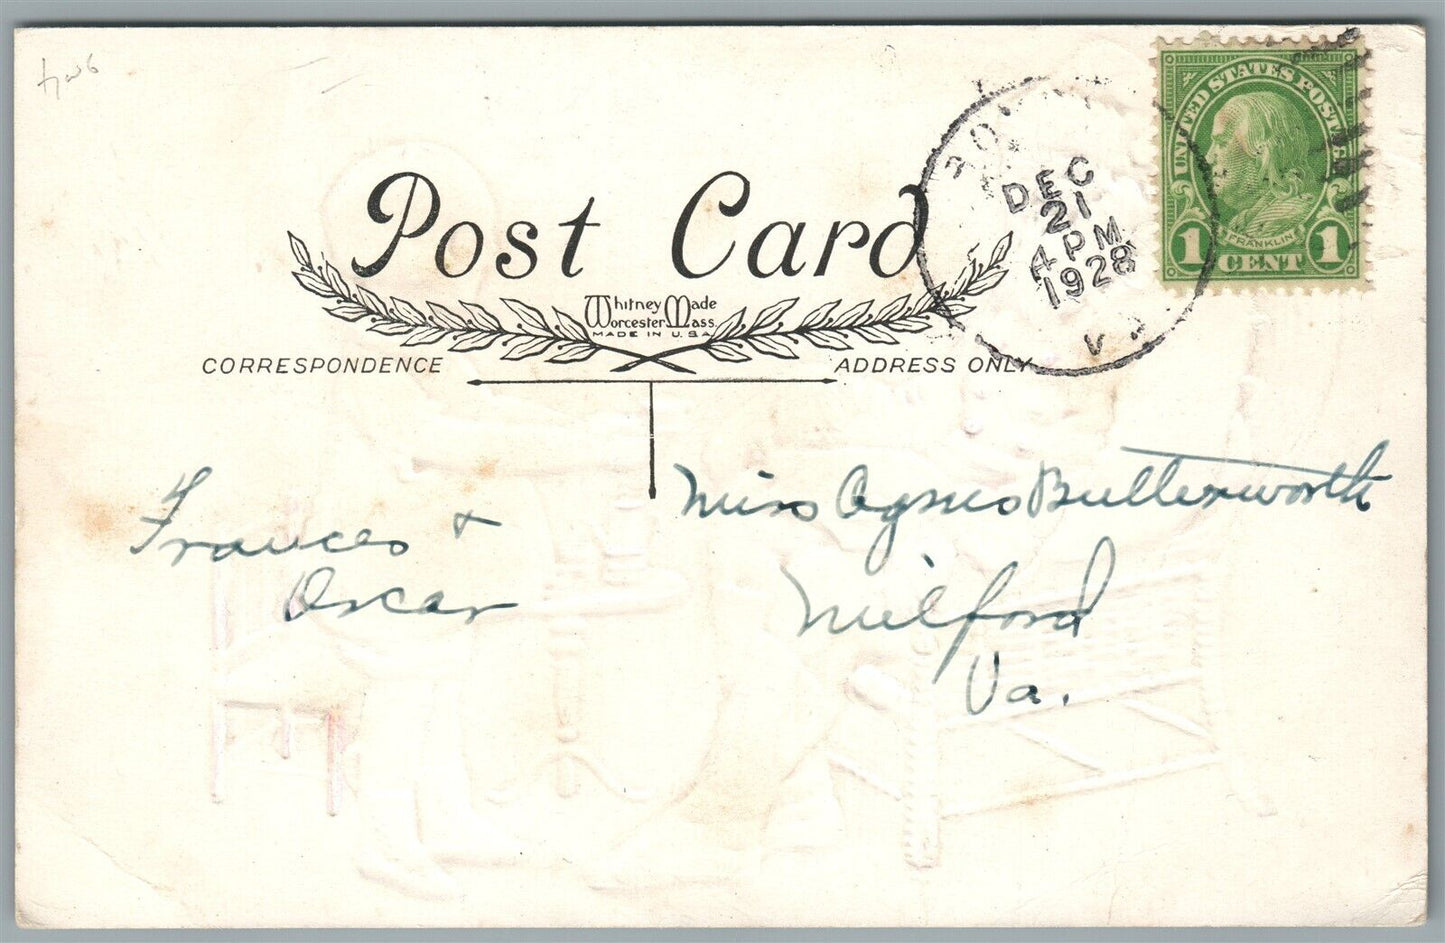 Post Card
Whitney Made
Worcester Mass.
MADE IN U.S.A.
CORRESPONDENCE
ADDRESS ONLY
DEC
21
4 PM
1928
UNITED STATES POSTAGE
FRANKLIN
1 CENT 1
Frances &
Oscar
Miss Agnes Butterworth
Milford
Va.